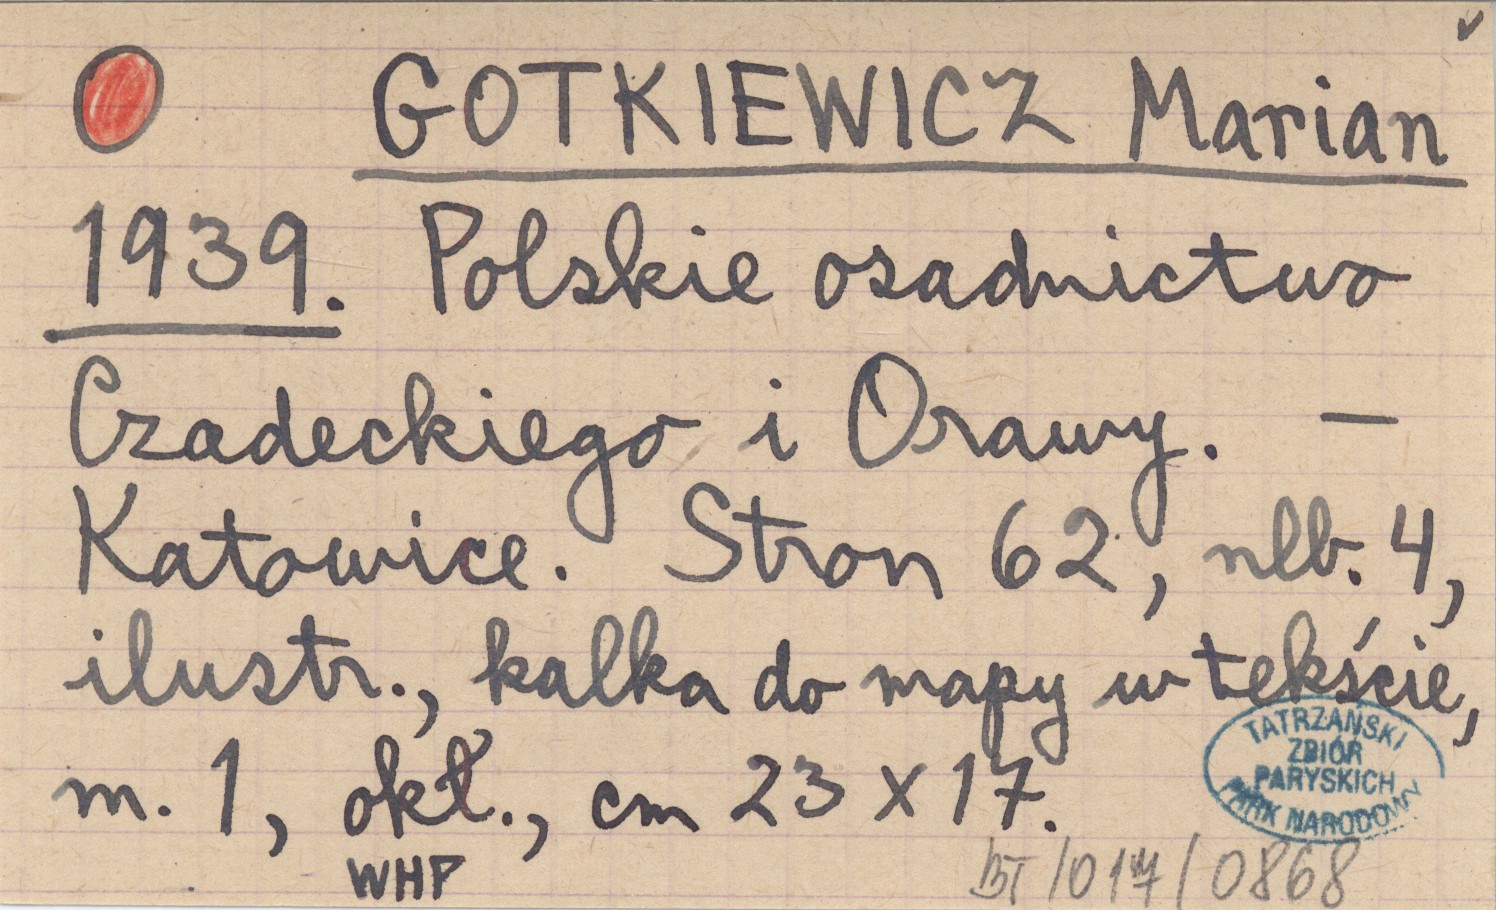 GOTKIEWICZ Marian
1939. Polskie osadnictwo
Czadeckiego i Orawy. —
Katowice. Stron 62, nlb. 4,
ilustr., kalka do mapy w tekście,
m. 1, okł., cm 23 x 17.
TATRZAŃSKI
ZBIÓR
PARYSKICH
PARK NARODOWY
WHP
BT/017/0868